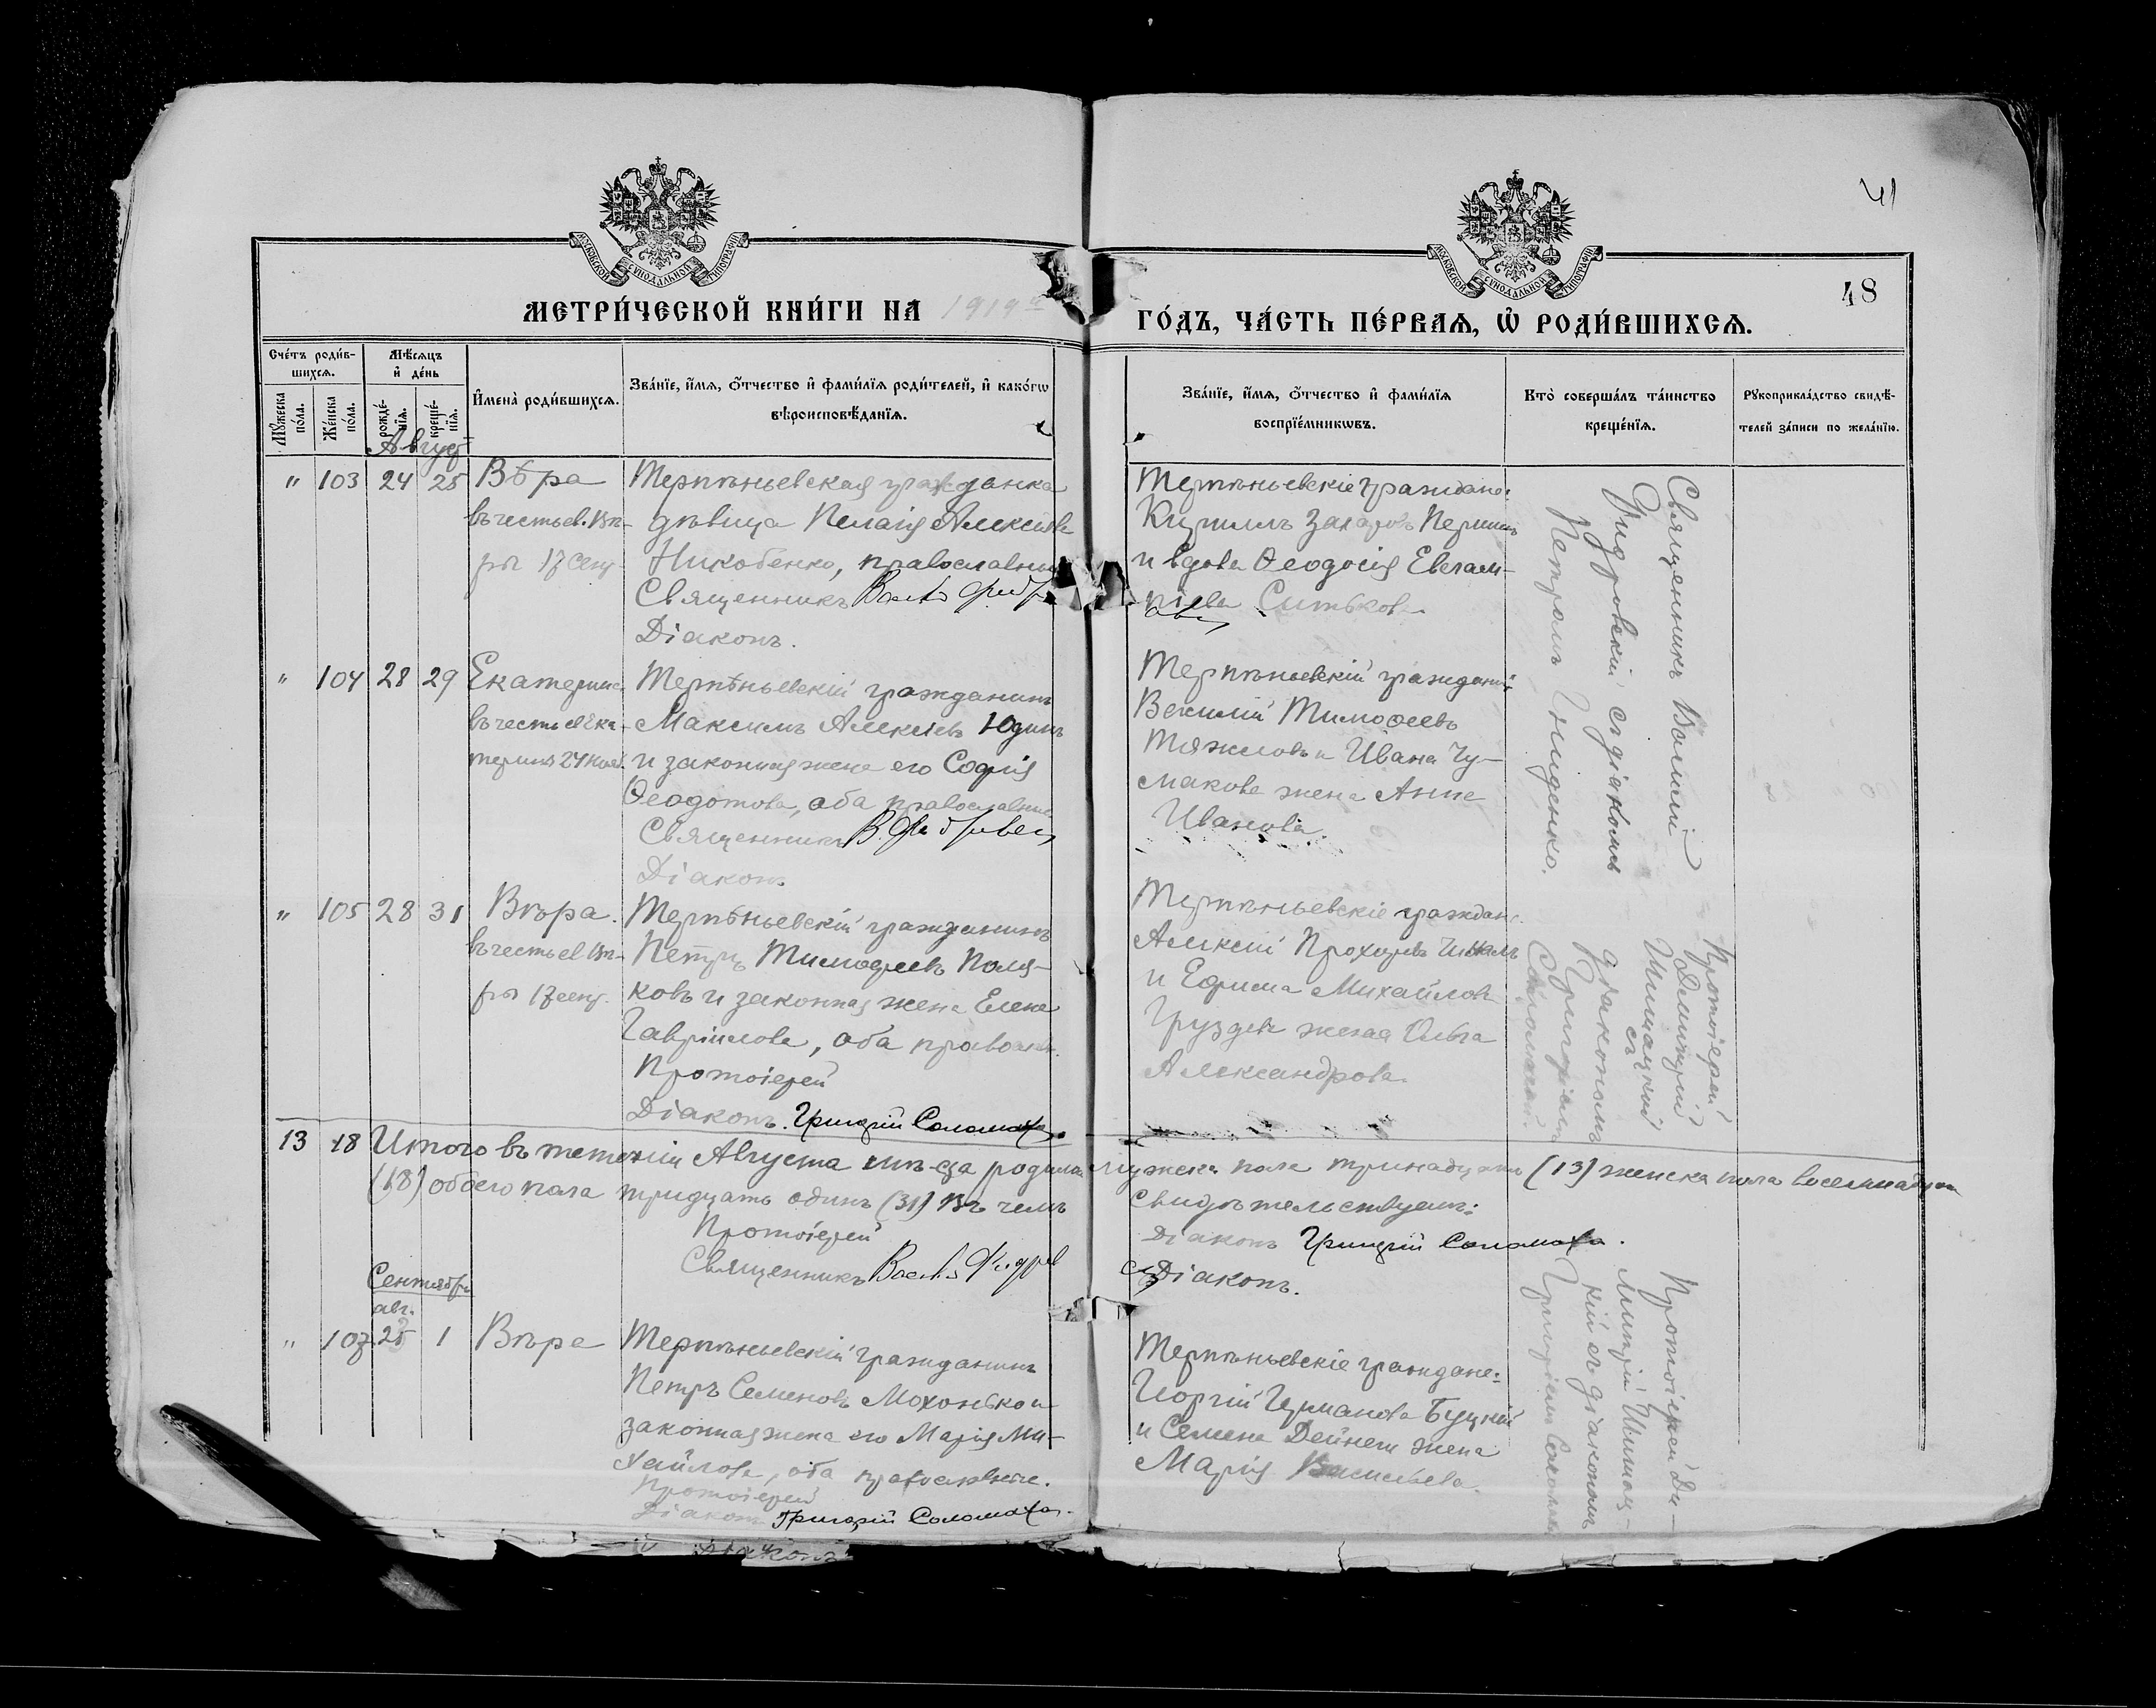 41
МОСКОВСКОЙ СУНОДАЛЬНОЙ ТИПОГРАФІИ
МОСКОВСКОЙ СУНОДАЛЬНОЙ ТИПОГРАФІИ
48
МЕТРИ́ЧЕСКОЙ КНИ́ГИ НА 1919
ГО́ДЪ, ЧА́СТЬ ПЕ́РВАЯ, Ѡ РОДИ́ВШИХСЯ.
Сче́тъ роди́в-
шихся.
Мѣ́сяцъ
и҆ де́нь
Му́жеска
по́ла.
Же́нска
по́ла.
рожде́-
нїя.
креще́-
нїя.
И҆мена̀ роди́вшихся.
Зва́нїе, и҆́мя, ѻ҆́тчество и҆ фами́лїя роди́телей, и҆ како́гѡ
вѣроисповѣ́данїя.
Зва́нїе, и҆́мя, ѻ҆́тчество и҆ фами́лїя
воспрїе́мникѡвъ.
Кто̀ соверша́лъ та́инство
креще́нїя.
Рꙋкоприкла́дство свидѣ́-
телей за́писи по жела́нїю.
Август
" 103 24 25 Вѣра
въ честь св. Вѣ-
ры 17 сент.
Терпѣньевская гражданка
дѣвица Пелагія Алексѣева
Никобенко, православная
Священникъ
Діаконъ.
Терпѣньевскіе граждане:
Кириллъ Захаровъ
и вдова Ѳеодосія Евлам-
піева Ситькова
Священникъ Василій
съ діакономъ
Петромъ Гниденко.
" 104 28 29 Екатерина
въ честь св Ека-
терины 24 нояб.
Терпѣньевскій гражданинъ
Максимъ Алексѣевъ Юдинъ
и законная жена его Софія
Ѳеодотова, оба православные
Священникъ
Діаконъ
Терпѣньевскій гражданинъ
Василій Тимоѳеевъ
Тяжловъ и Ивана Чу-
макова жена Анна
Иванова.
" 105 28 31 Вѣра.
въ честь св Вѣ-
ры 17 сент.
Терпѣньевскій гражданинъ
Петръ Тимофеевъ Поля-
ковъ и законная жена Елена
Гавріилова, оба правосл.
Протоіерей
Діаконъ. Григорій Соломаха.
Терпѣньевскіе граждане.
Алексій Прохоровъ
и Ефима Михайлова
Груздева жена Ольга
Александрова.
Протоіерей
Димитрій
съ
діакономъ
Григоріемъ
Соломахой.
13 18 Итого въ теченіи Августа мѣ-сяца родилось мужска пола тринадцать (13) женска пола восемнадцать
(18) обоего пола тридцать одинъ (31) Въ чемъ свидѣтельствуемъ:
Протоіерей
Діаконъ Григорій Соломаха.
Священникъ
Діаконъ.
Сентябрь
авг.
" 107 25 1 Вѣра
Терпѣньевскій гражданинъ
Петръ Семеновъ Мохонько и
законная жена его Марія Ми-
хайлова, оба православные.
Протоіерей
Діаконъ Григорій Соломаха.
Терпѣньевскіе граждане:
Георгій Буцкій
и Семена Дейнеги жена
Марія Васильева.
Протоіерей Ди-
митрій
кій съ діакономъ
Григоріемъ
Діаконъ